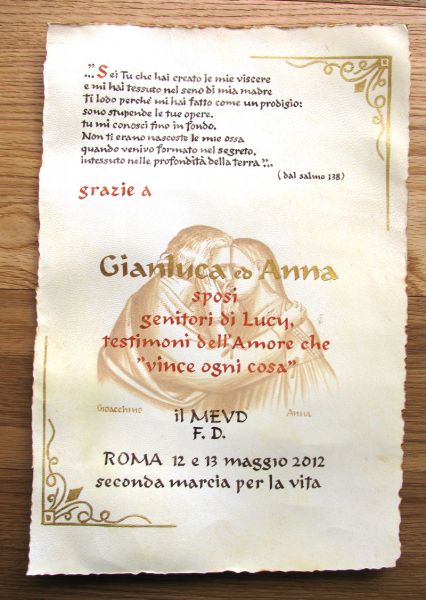 "... Sei Tu che hai creato le mie viscere
e mi hai tessuto nel seno di mia madre
Ti lodo perché mi hai fatto come un prodigio:
sono stupende le tue opere,
tu mi conosci fino in fondo.
Non ti erano nascoste le mie ossa
quando venivo formato nel segreto,
intessuto nelle profondità della terra"...
(dal salmo 138)
grazie a
Gianluca ed Anna
sposi
genitori di Lucy,
testimoni dell'Amore che
"vince ogni cosa"
Gioacchino Anna
il MEVD
F. D.
ROMA 12 e 13 maggio 2012
seconda marcia per la vita